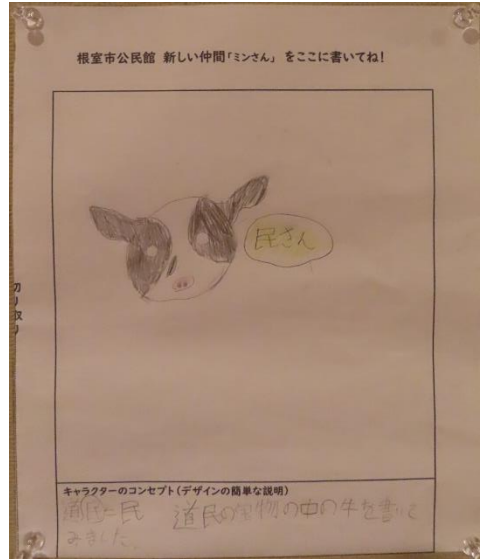 根室市公民館 新しい仲間「ミンさん」 をここに書いてね!
民さん
切り取り
キャラクターのコンセプト(デザインの簡単な説明)
道民=民 道民の宝物の中の牛を書いて
みました